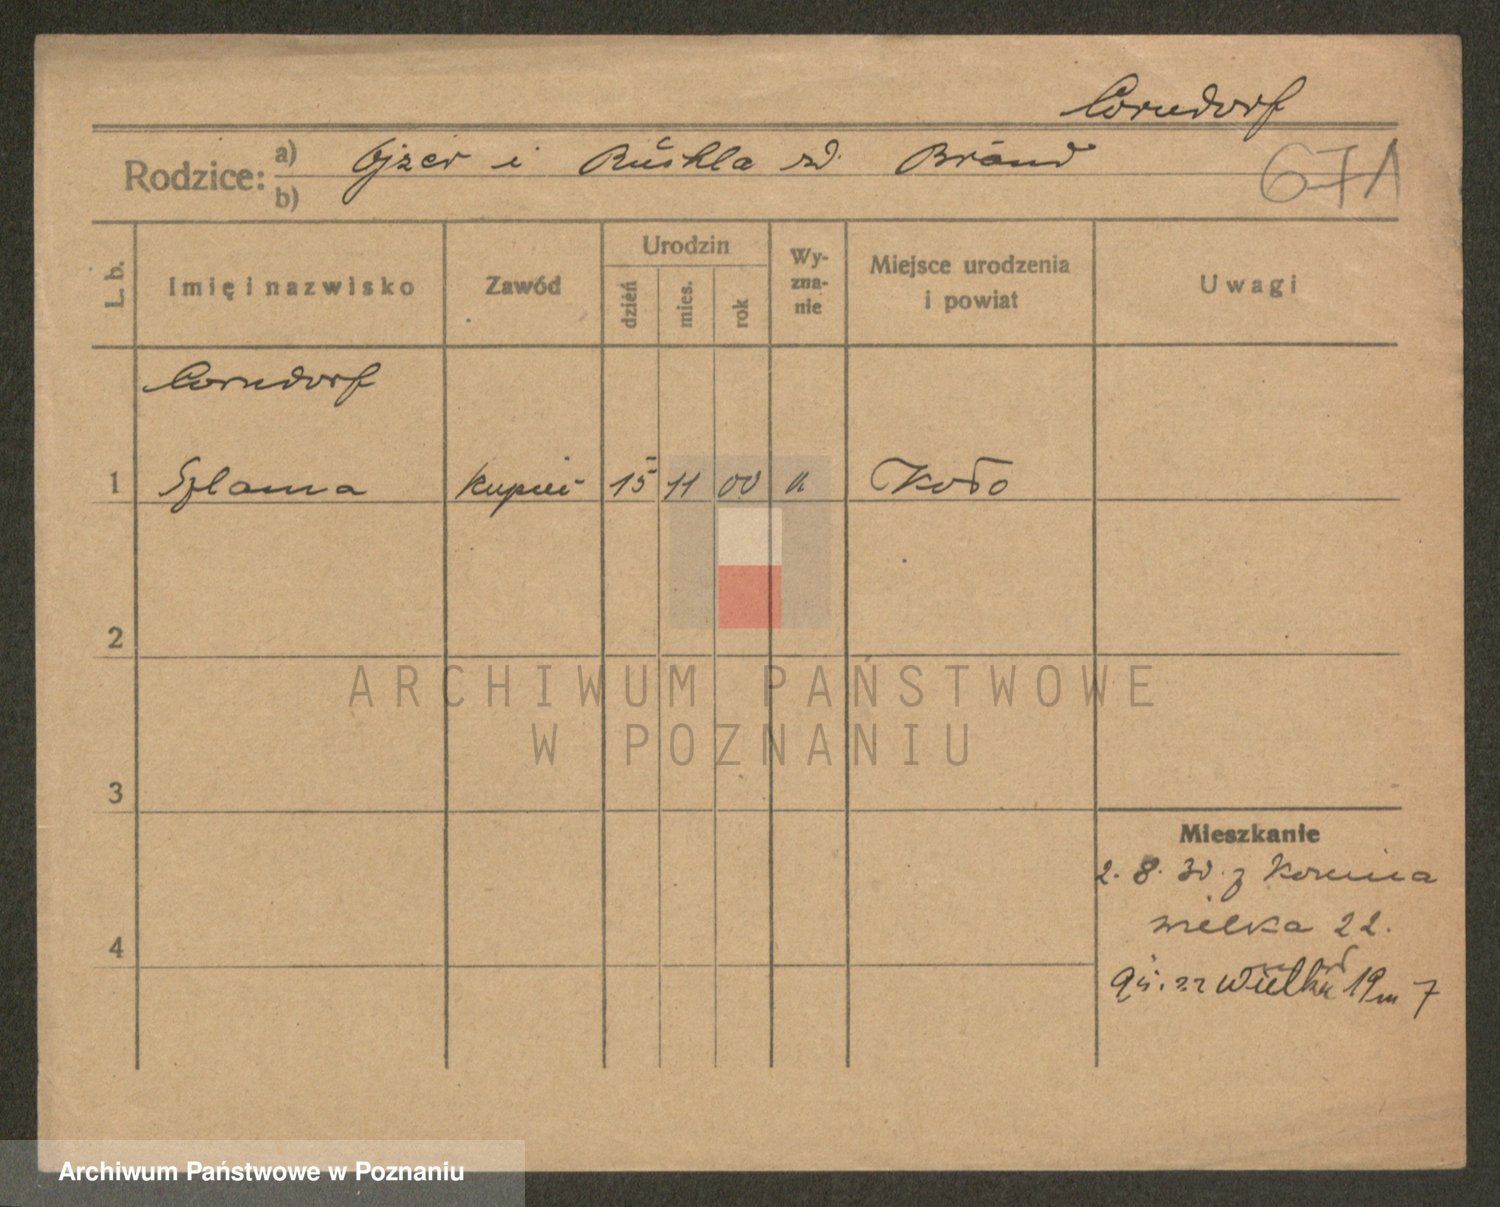 Corndorf
Rodzice: a) Ojzer i Ruchla zd. Brand
b)
671
L. b.
Imię i nazwisko
Zawód
Urodzin
dzień
mies.
rok
Wy-
zna-
nie
Miejsce urodzenia
i powiat
Uwagi
Corndorf
1 Szlama kupiec 15 11 00 Koło
2
3
4
Mieszkanie
2. 8. 30. z Konina
wielka 22.
Wielka 19 m 7
ARCHIWUM PAŃSTWOWE
W POZNANIU
Archiwum Państwowe w Poznaniu